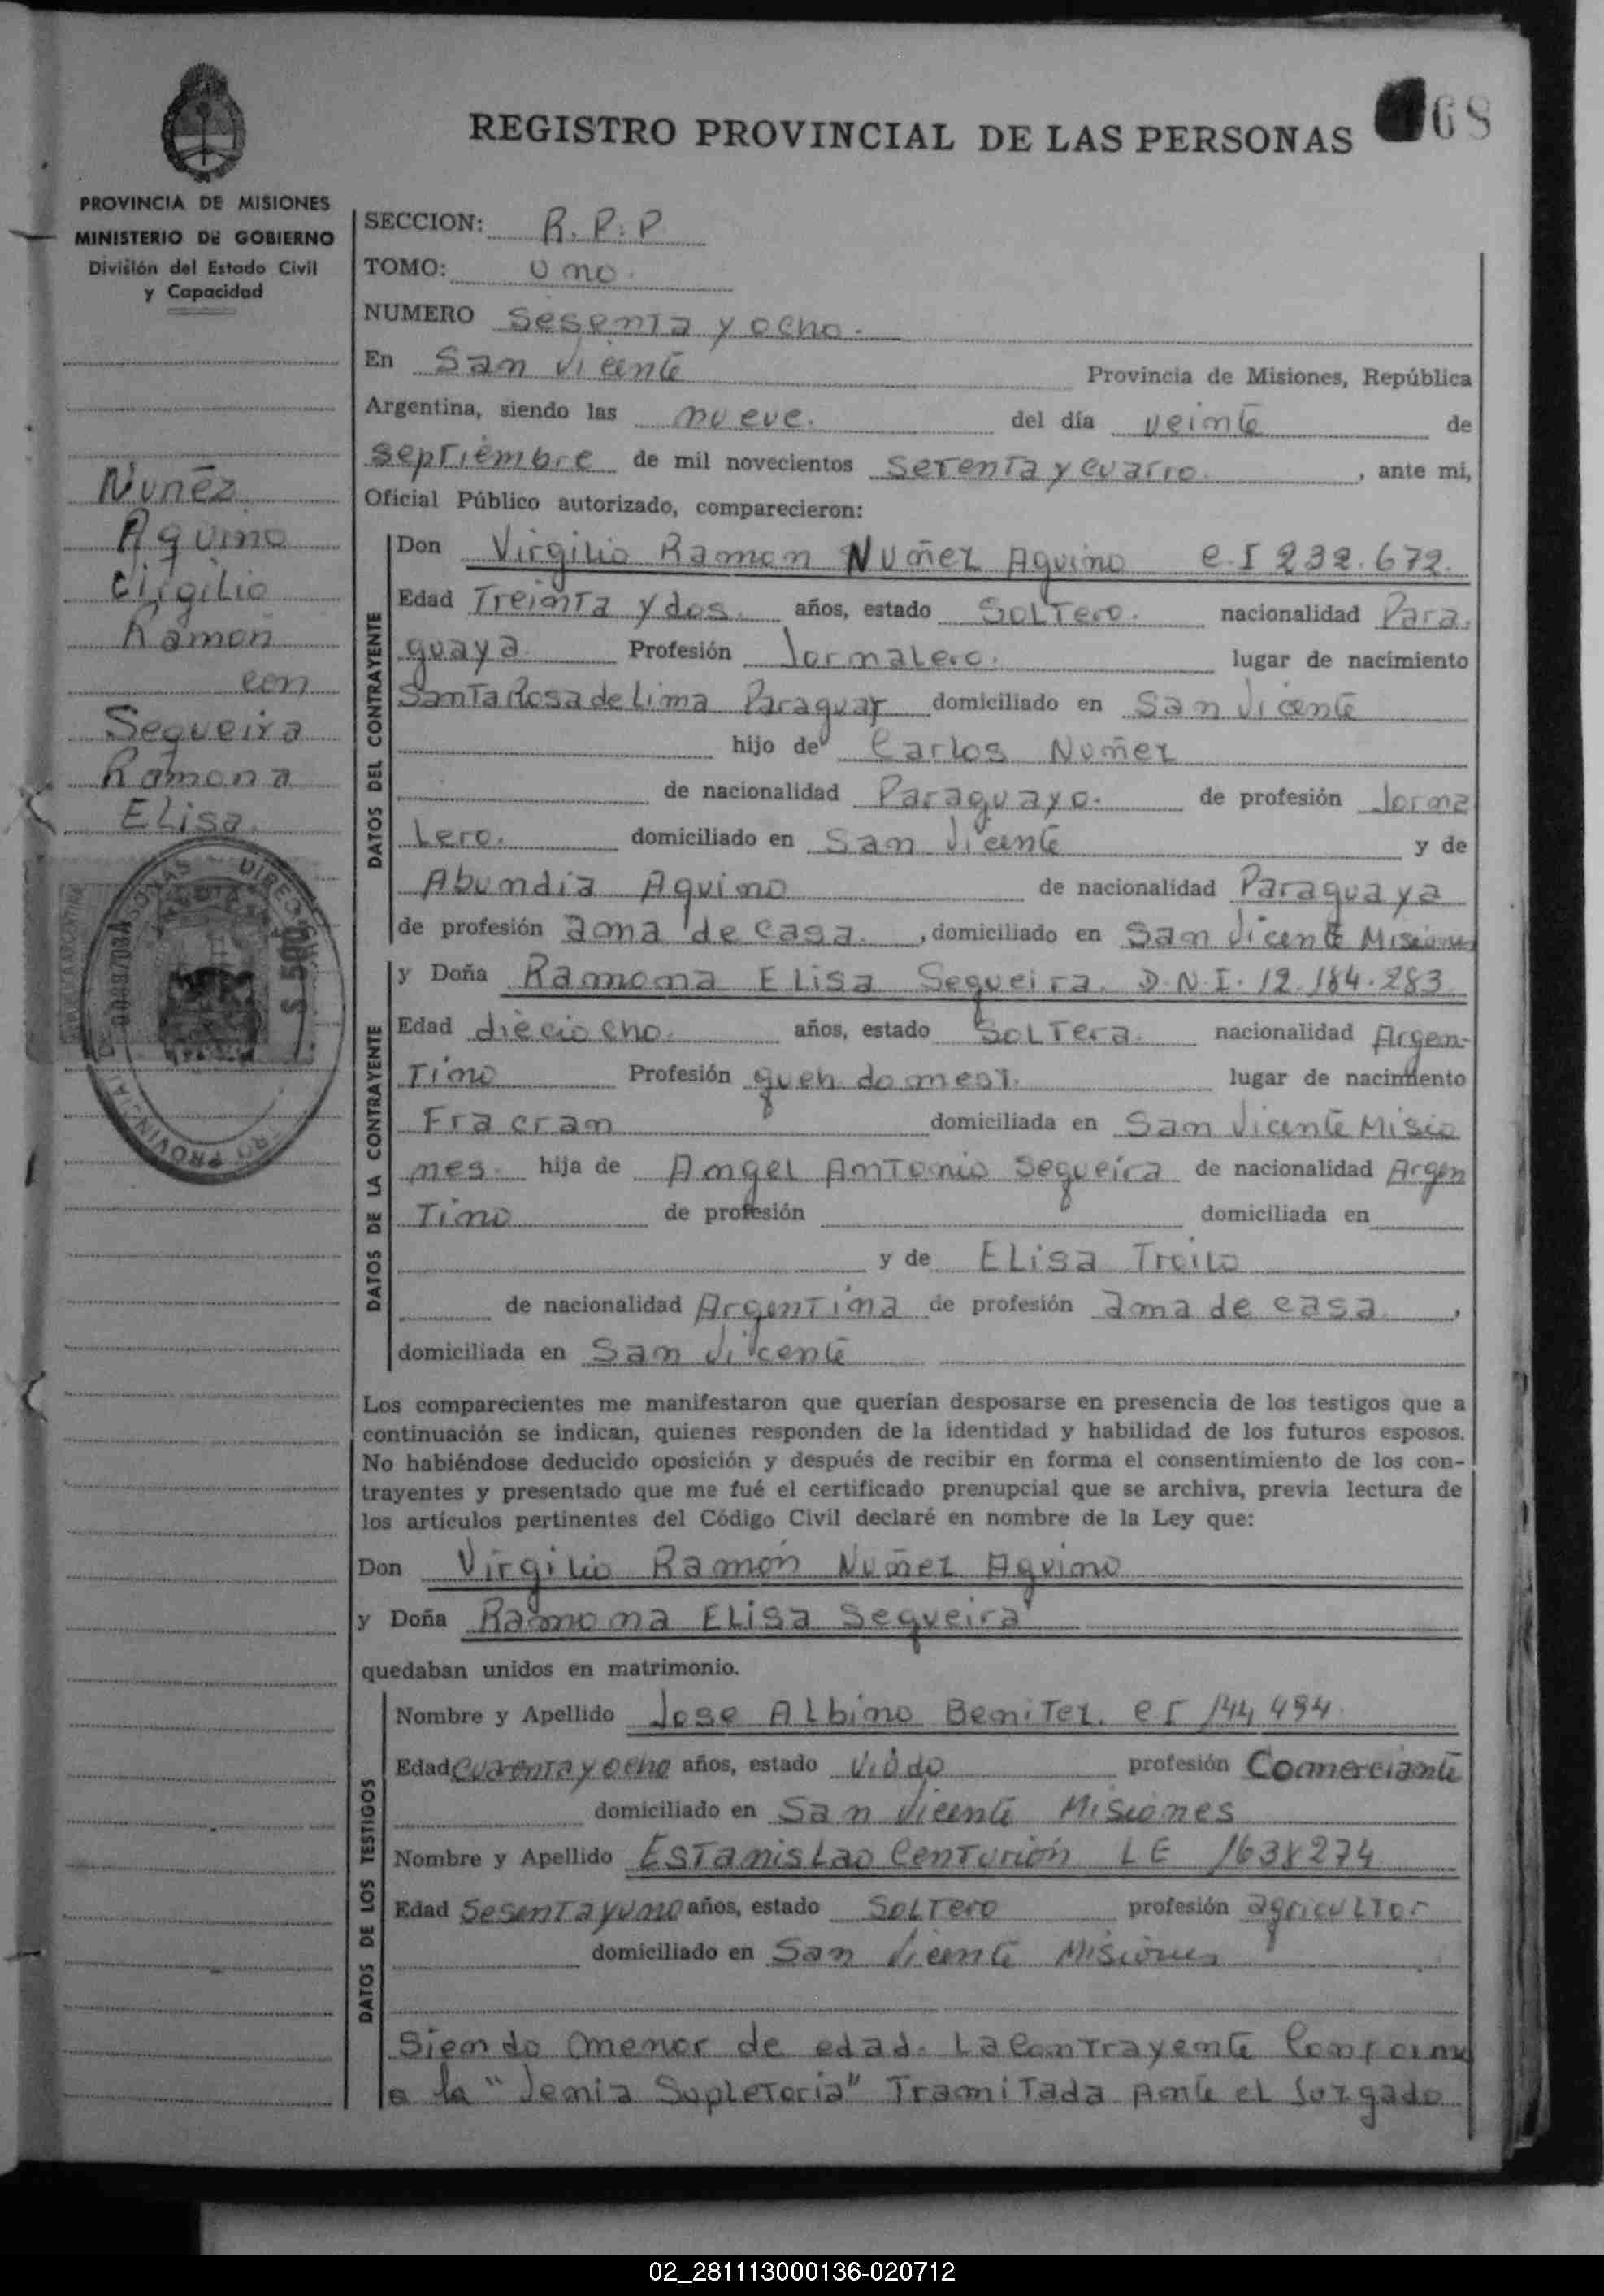 REGISTRO PROVINCIAL DE LAS PERSONAS 68
PROVINCIA DE MISIONES
MINISTERIO DE GOBIERNO
División del Estado Civil
y Capacidad
Nuñez
Aquino
Virgilio
Ramon
con
Sequeira
Ramona
Elisa
SECCION: R.P.P
TOMO: Uno.
NUMERO Sesenta y ocho.
En San Vicente Provincia de Misiones, República
Argentina, siendo las nueve. del día veinte de
septiembre de mil novecientos setenta y cuatro. , ante mi,
Oficial Público autorizado, comparecieron:
DATOS DEL CONTRAYENTE
Don Virgilio Ramon Nuñez Aquino C.I 232.672.
Edad Treinta y dos. años, estado Soltero. nacionalidad Para.
guaya. Profesión Jornalero. lugar de nacimiento
Santa Rosa de Lima Paraguay domiciliado en San Vicente
hijo de Carlos Nuñez
de nacionalidad Paraguayo. de profesión Jorna
lero. domiciliado en San Vicente y de
Abundia Aquino de nacionalidad Paraguaya
de profesión ama de casa. , domiciliado en San Vicente Misiones
DATOS DE LA CONTRAYENTE
y Doña Ramona Elisa Sequeira. D.N.I. 12.184.283
Edad dieciocho. años, estado Soltera. nacionalidad Argen-
tino Profesión queh. domest. lugar de nacimiento
Fracran domiciliada en San Vicente Misio
nes. hija de Angel Antonio Sequeira de nacionalidad Argen
tino de profesión domiciliada en
y de Elisa Troilo
de nacionalidad Argentina de profesión ama de casa ,
domiciliada en San Vicente
Los comparecientes me manifestaron que querían desposarse en presencia de los testigos que a
continuación se indican, quienes responden de la identidad y habilidad de los futuros esposos.
No habiéndose deducido oposición y después de recibir en forma el consentimiento de los con-
trayentes y presentado que me fué el certificado prenupcial que se archiva, previa lectura de
los artículos pertinentes del Código Civil declaré en nombre de la Ley que:
Don Virgilio Ramón Nuñez Aquino
y Doña Ramona Elisa Sequeira
quedaban unidos en matrimonio.
DATOS DE LOS TESTIGOS
Nombre y Apellido Jose Albino Benitez. CI 144 494
Edad cuarenta y ocho años, estado viudo profesión Comerciante
domiciliado en San Vicente Misiones
Nombre y Apellido Estanislao Centurión LE 1638274
Edad Sesenta y uno años, estado Soltero profesión agricultor
domiciliado en San Vicente Misiones
Siendo menor de edad. La contrayente Conforme
a la "Venia Supletoria" Tramitada ante el Juzgado
02_281113000136-020712